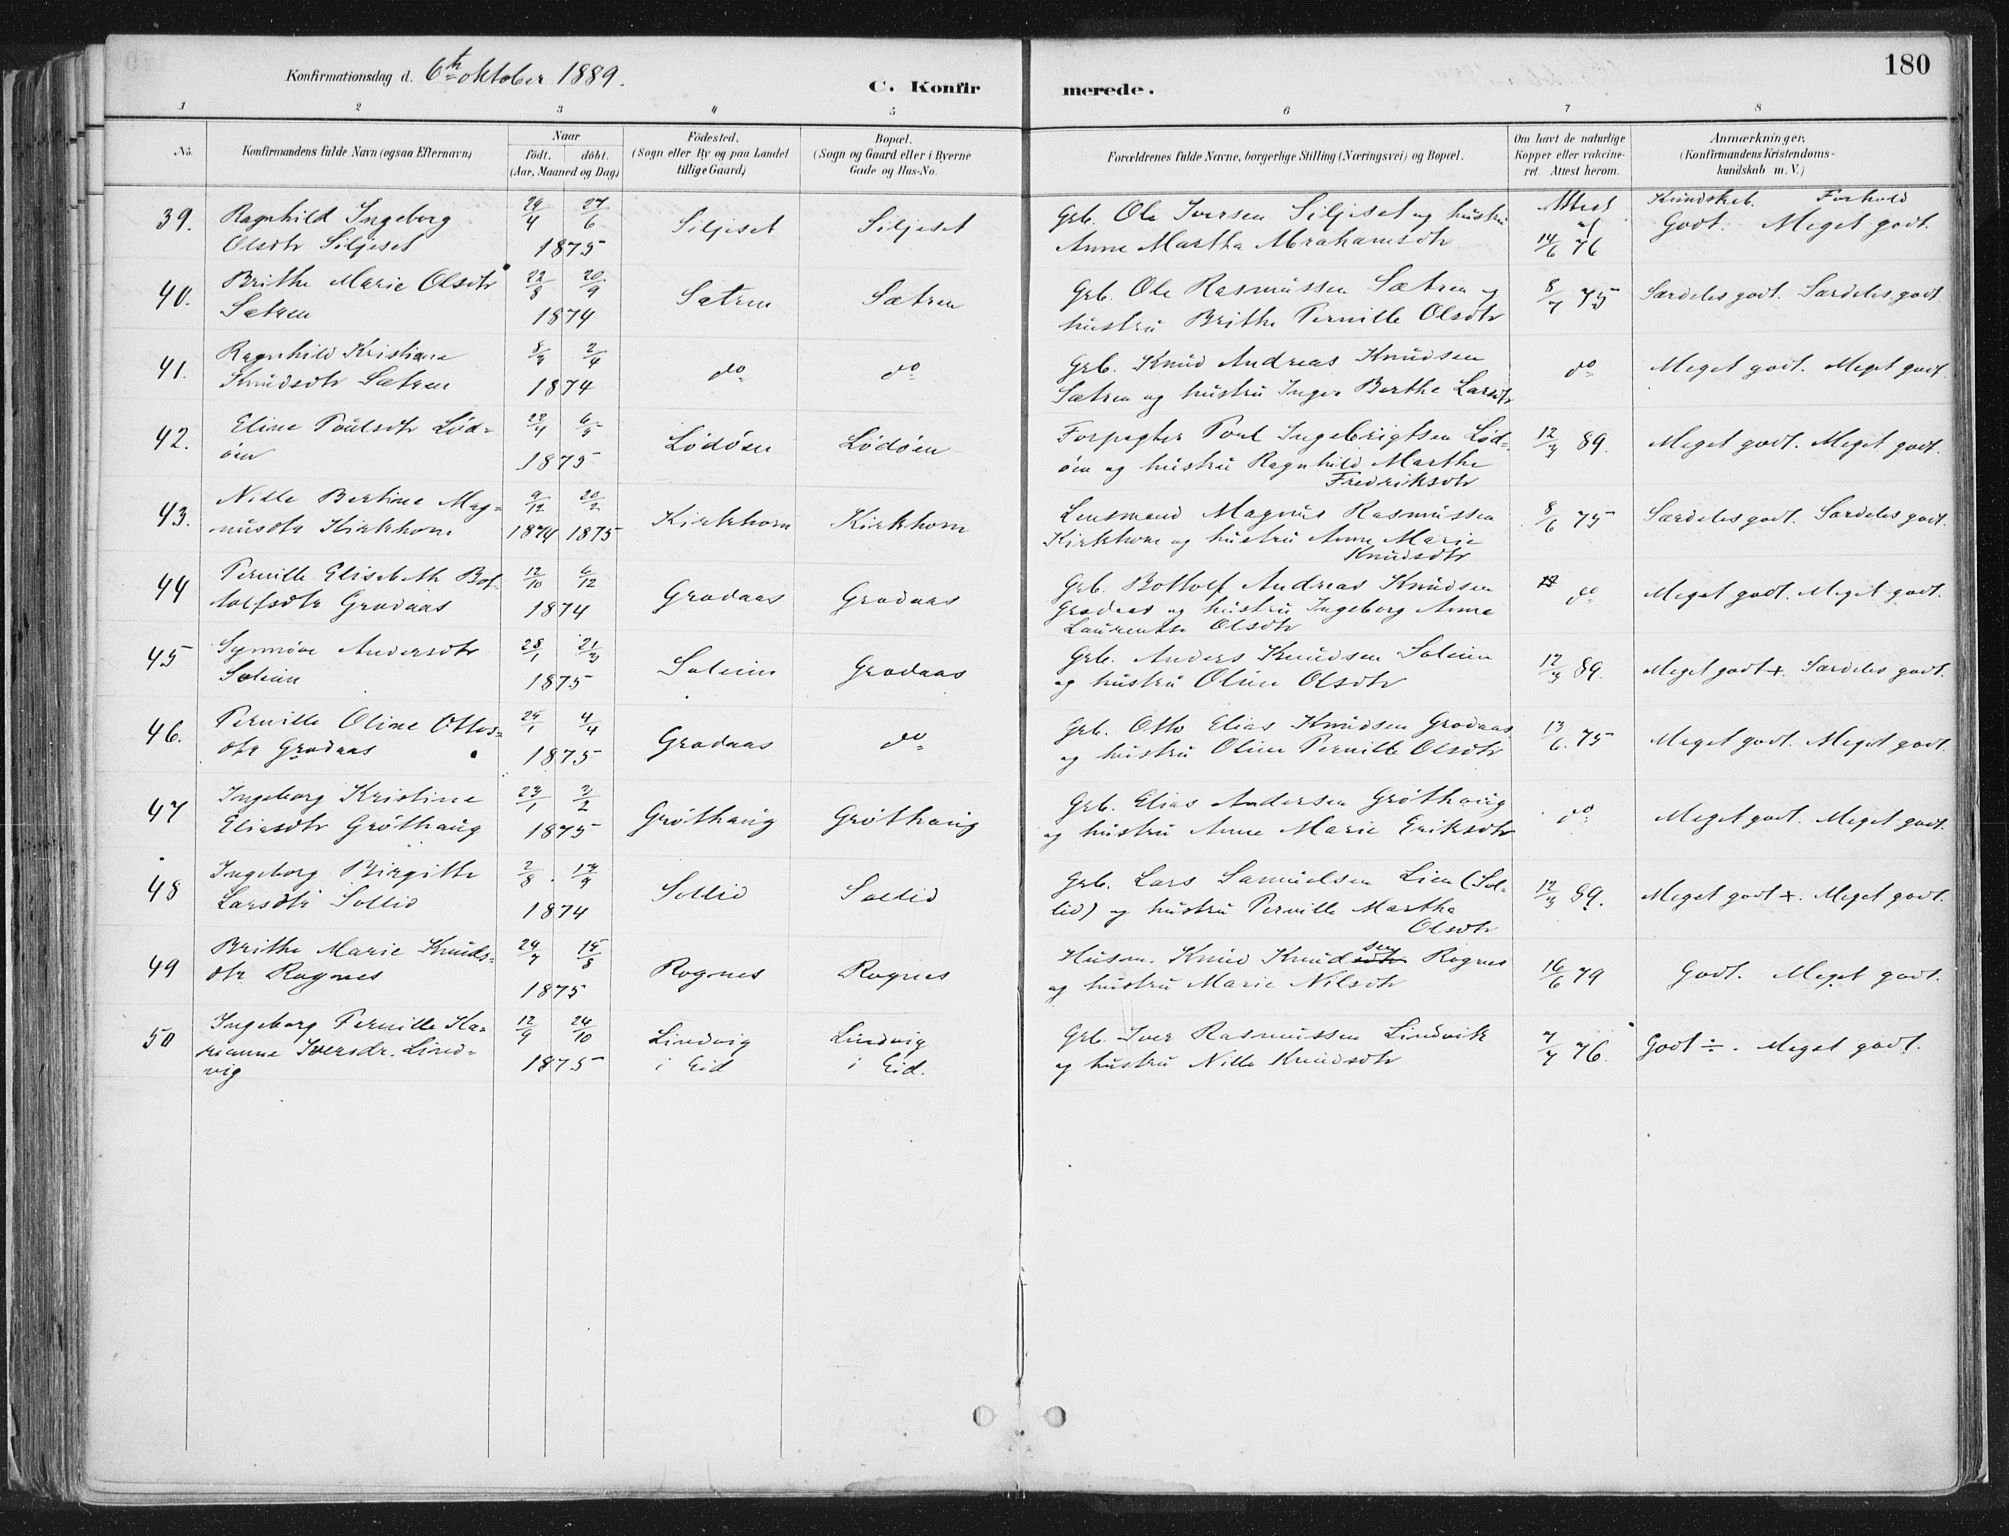 180
Konfirmationsdag d. 6te oktober 1889.
C. Konfirmerede.
1 2 3 4 5 6 7 8
No.
Konfirmandens fulde Navn (ogsaa Efternavn)
Naar
födt. döbt.
(Aar, Maaned og Dag)
Födested.
(Sogn eller By og paa Landet
tillige Gaard)
Bopæl.
(Sogn og Gaard eller i Byerne
Gade og Hus-No.
Forældrenes fulde Navne, borgerlige Stilling (Næringsvei) og Bopæl.
Om havt de naturlige
Kopper eller vakcine-
ret. Attest herom.
Anmærkninger.
(Konfirmandens Kristendoms-
kundskab m. V.)
Attest af Kundskab. Forhold
39. Ragnhild Ingeborg 29/4 27/6 Siljeset Siljeset Grb. Ole Iversen Siljeset og hustru Godt. Meget godt.
Olsdtr Siljeset 1875 Anne Martha Abrahamsdtr 14/6 76
40. Brithe Marie Olsdtr 22/8 20/9 Sætren Sætren Grb. Ole Rasmussen Sætren og 8/7 75 Særdeles godt. Særdeles godt.
Sætren 1874 hustru Brithe Pernille Olsdtr
41. Ragnhild Kristiane 8/3 2/4 do do Grb. Knud Andreas Knudsen do Meget godt. Meget godt.
Knudsdtr Sætren 1874 Sætren og hustru Inger Berthe Larsdtr
42. Eline Poulsdtr Lød- 22/4 6/5 Lødøen Lødøen Forpagter Poul Ingebrigtsen Lød- 12/3 89. Meget godt. Meget godt.
øen 1875 øen og hustru Ragnhild Marthe
Fredriksdtr
43. Nille Bertine Mag- 9/12 20/2 Kirkhorn Kirkhorn Lensmand Magnus Rasmussen 8/6 75 Særdeles godt. Særdeles godt.
nusdtr Kirkhorn 1874 1875 Kirkhorn og hustru Anne Marie
Knudsdtr
44 Pernille Elisabeth Bot- 12/10 6/12 Grodaas Grodaas Grb. Bottolf Andreas Knudsen do Meget godt. Meget godt.
tolfsdtr Grodaas 1874 Grodaas og hustru Ingeborg Anne
Laurentse Olsdtr
45 Synnøve Andersdtr 28/1 21/3 Soleim Grodaas Grb. Anders Knudsen Soleim 12/3 89. Meget godt +. Særdeles godt.
Soleim 1875 og hustru Oline Olsdtr
46. Pernille Oline Ottos- 25/1 4/4 Grodaas do Grb. Otto Elias Knudsen Grodaas 13/6. 75 Meget godt. Meget godt.
dtr Grodaas 1875 og hustru Oline Pernille Olsdtr
47 Ingeborg Kristine 23/1 2/2 Grøthaug Grøthaug Grb. Elias Andersen Grøthaug do Meget godt. Meget godt.
Eliasdtr Grøthaug 1875 og hustru Anne Marie Eriksdtr
48 Ingeborg Birgitte 2/8. 13/9 Sollid Sollid Grb. Lars Samuelsen Lien (Sol- 12/3 89. Meget godt +. Meget godt.
Larsdtr Sollid 1874 lid) og hustru Pernille Martha
Olsdtr
49 Brithe Marie Knuds- 24/7 15/8 Rognes Rognes Husm. Knud Knudsen Rognes 16/6 79 Godt. Meget godt.
dtr Rognes 1875 og hustru Marie Nilsdtr
50 Ingeborg Pernille Ka- 12/9 24/10 Lindvig Lindvig Grb. Iver Rasmussen Lindvik 7/7 76. Godt ÷. Meget godt.
rianne Iversdr. Lind- i Eid i Eid. og hustru Nille Knudsdtr
vig 1875